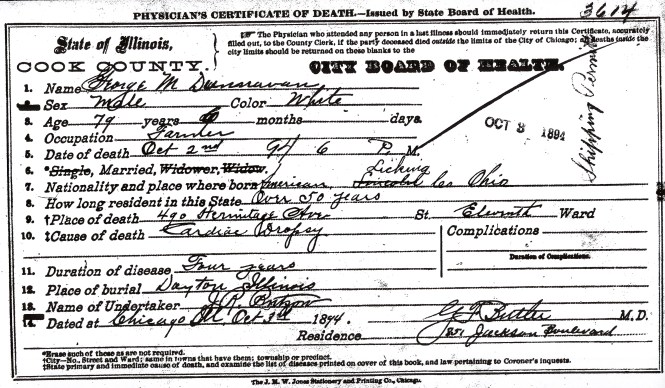 PHYSICIAN'S CERTIFICATE OF DEATH.—Issued by State Board of Health.
3614
State of Illinois,
COOK COUNTY.
The Physician who attended any person in a last illness should immediately return this Certificate, accurately
filled out, to the County Clerk, if the party deceased died outside the limits of the City of Chicago; all Deaths inside the
city limits should be returned on these blanks to the
CITY BOARD OF HEALTH.
1. Name George M Dunnavan
Sex Male Color White
3. Age 79 years months days.
OCT 3 1894
Shipping Permit
4. Occupation Farmer
5. Date of death Oct 2nd 94 6 P. M.
6. *Single, Married, Widower, Widow,
Licking
7. Nationality and place where born American, Lincoln Co Ohio
8. How long resident in this State Over 50 years
9. †Place of death 490 Hermitage Ave St. Eleventh Ward
10. ‡Cause of death Cardiac Dropsy
Complications
Duration of Complications.
11. Duration of disease Four years
12. Place of burial Dayton Illinois
13. Name of Undertaker J.R.
14. Dated at Chicago Ill Oct 3rd 1894. G F Butler M.D.
Residence 851 Jackson Boulevard
*Erase such of these as are not required.
†City—No., Street and Ward; same in towns that have them; township or precinct.
‡State primary and immediate cause of death, and examine the list of diseases printed on cover of this book, and law pertaining to Coroner's inquests.
The J. M. W. Jones Stationery and Printing Co., Chicago.